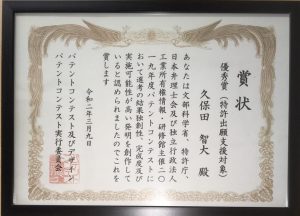 賞状
優秀賞(特許出願支援対象)
久保田 智大 殿
あなたは文部科学省、特許庁、
日本弁理士会及び独立行政法人
工業所有権情報・研修館主催二〇
一九年度パテントコンテストに
おいて選考の結果独創性、完成度及び
実施可能性が高い発明を創作して
いると認められましたのでこれを
賞します
令和二年三月九日
パテントコンテスト及びデザイン
パテントコンテスト実行委員会